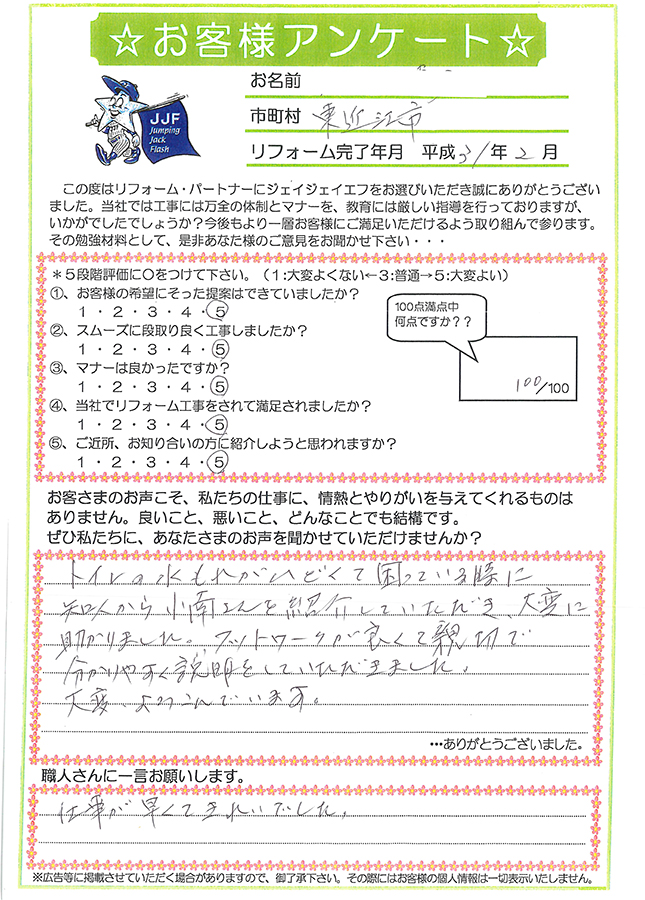 ☆お客様アンケート☆
お名前
市町村 東近江市
リフォーム完了年月 平成31年2月
JJF
Jumping
Jack
Flash
この度はリフォーム・パートナーにジェイジェイエフをお選びいただき誠にありがとうござい
ました。当社では工事には万全の体制とマナーを、教育には厳しい指導を行っておりますが、
いかがでしたでしょうか？今後もより一層お客様にご満足いただけるよう取り組んで参ります。
その勉強材料として、是非あなた様のご意見をお聞かせ下さい・・・
＊５段階評価に○をつけて下さい。（１:大変よくない←３:普通→５:大変よい）
①、お客様の希望にそった提案はできていましたか？
１・２・３・４・５
②、スムーズに段取り良く工事しましたか？
１・２・３・４・５
③、マナーは良かったですか？
１・２・３・４・５
④、当社でリフォーム工事をされて満足されましたか？
１・２・３・４・５
⑤、ご近所、お知り合いの方に紹介しようと思われますか？
１・２・３・４・５
100点満点中
何点ですか？？
100/100
お客さまのお声こそ、私たちの仕事に、情熱とやりがいを与えてくれるものは
ありません。良いこと、悪いこと、どんなことでも結構です。
ぜひ私たちに、あなたさまのお声を聞かせていただけませんか？
トイレの水もれがひどくて困っている時に
知人から小南さんを紹介していただき、大変に
助かりました。フットワークが良くて親切で
分かりやすく説明をしていただきました。
大変、よろこんでいます。
…ありがとうございました。
職人さんに一言お願いします。
仕事が早くてきれいでした。
※広告等に掲載させていただく場合がありますので、御了承下さい。その際にはお客様の個人情報は一切表示いたしません。